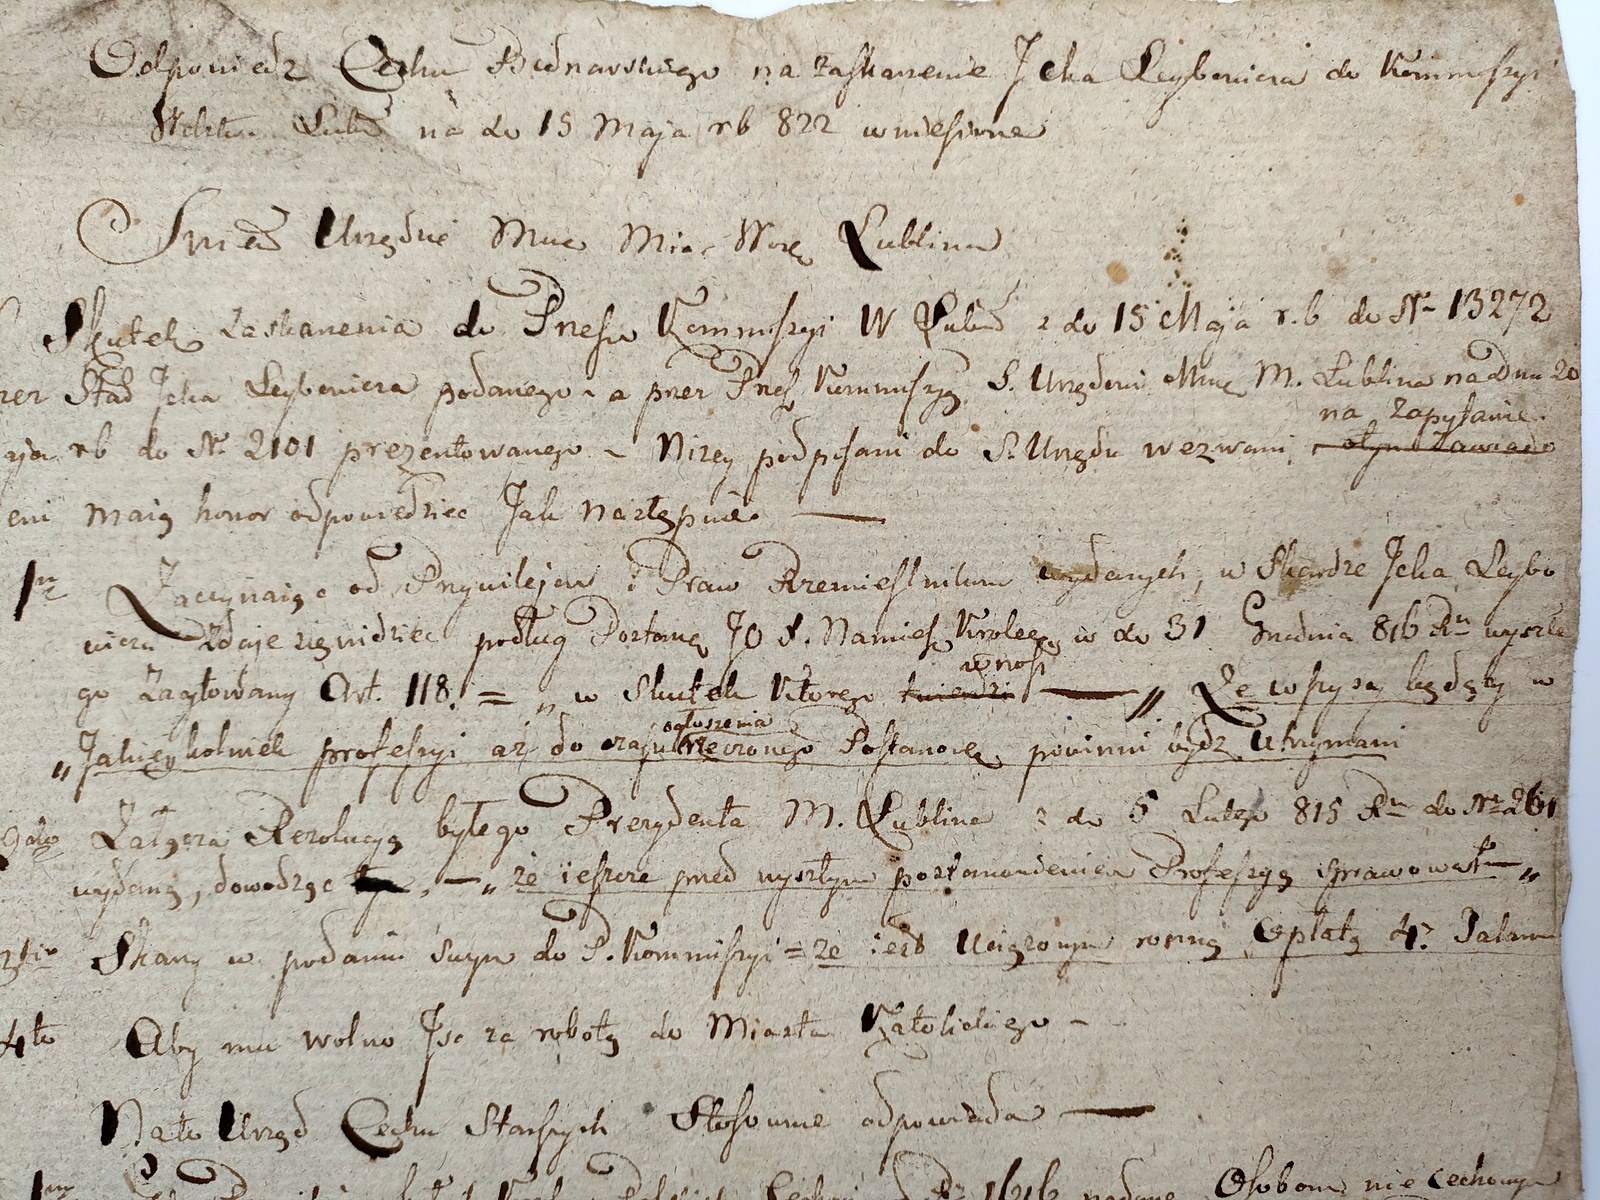 Odpowiedz Cechu Bednarskiego na zaskarzenie Jcka Leybowicza do Kommissyi
Wdztw Lubel na do 15 Maja rb 822 wniesione
Swie Urzędu Muc Mia Woię Lublina
Skutek zaskarzenia do Prześw Kommissyi W Lubel z do 15 Maja r.b do Nr 13272
rzez Star Jcka Leybowicza podanego a przez Prześ Kommissyę S. Urzędowi Muc M. Lublina na Dniu 20
aja rb do Nr 2101 prezentowanego ~ Nizey podpisani do S. Urzędu wezwani
na zapytanie
eni maią honor odpowiedziec Jak Następuie. —
1mo Zaczynaiąc od Przywilejow i Praw Rzemieslnikom wydanych, w Skardze Jcka Leybo
wicza zdaje się widziec podług Postanow JO X. Namies Krolew w do 31 Grudnia 816 Rn wyszłe
go Zacytowany Art. 118. = „ w Skutek Ktorego twierdzi — „ Ze wszyscy będący w
wnosi
„Jakieykolwiek professyi aż do czasu rzeczonego Postanow powinni bydz Utrzymani
ogłoszenia
2do Załącza Rezolucyę byłego Prezydenta M. Lublina z do 5 Lutego 815 Rn do Nr 261
wydaną, dowodząc — „ ze ieszcze przed wyszłym postanowieniem Professyę sprawował — „
3tio Skarzy w podaniu swym do P. Kommissyi = ze iest Uciązonym roczną Opłatą 4. Talarow
4to Aby mu wolno Jsc za robotą do Miasta Katolickiego —
Nato Urząd Cechu Starszych Stosownie odpowiada —
1mo nadane Osobom nie cechowym